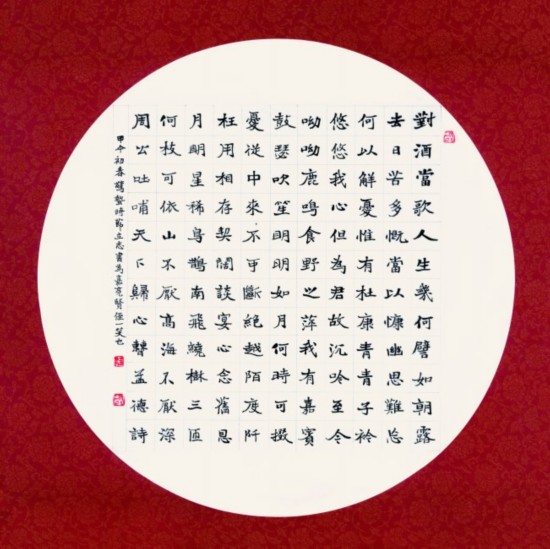 對酒當歌人生幾何譬如朝露
去日苦多慨當以慷幽思難忘
何以解憂惟有杜康青青子衿
悠悠我心但為君故沉吟至今
呦呦鹿鳴食野之萍我有嘉賓
鼓瑟吹笙明明如月何時可掇
憂從中來不可斷絕越陌度阡
枉用相存契闊談宴心念舊恩
月明星稀烏鵲南飛繞樹三匝
何枝可依山不厭高海不厭深
周公吐哺天下歸心曹孟德詩
甲午初春驚蟄時節立志書為嘉賢侄一笑也